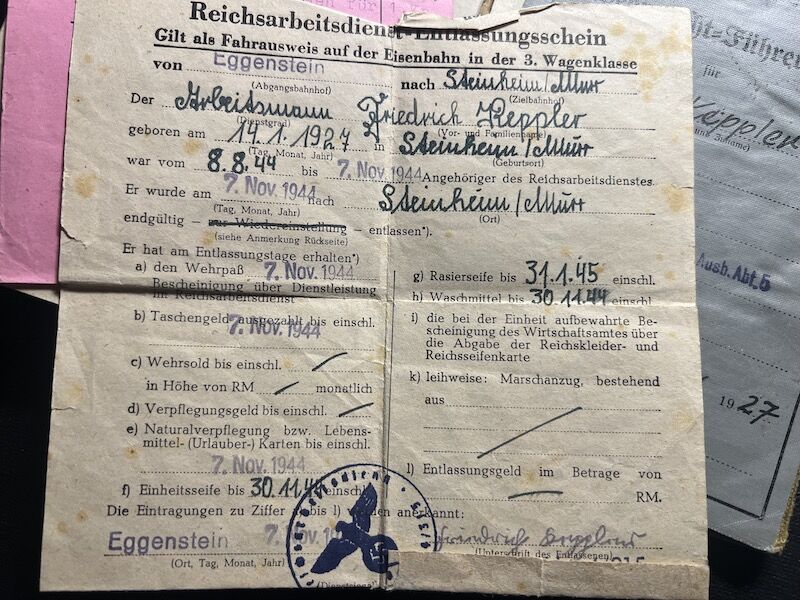 Reichsarbeitsdienst-Entlassungsschein
Gilt als Fahrausweis auf der Eisenbahn in der 3. Wagenklasse
von Eggenstein nach Steinheim/Murr
(Abgangsbahnhof) (Zielbahnhof)
Der Arbeitsmann Friedrich Keppler
(Dienstgrad) (Vor- und Familienname)
geboren am 14.1.1927 in Steinheim/Murr
(Tag, Monat, Jahr) (Geburtsort)
war vom 8.8.44 bis 7. Nov. 1944 Angehöriger des Reichsarbeitsdienstes.
Er wurde am 7. Nov. 1944 nach Steinheim/Murr
(Tag, Monat, Jahr) (Ort)
endgültig – zur Wiedereinstellung – entlassen*).
(siehe Anmerkung Rückseite)
Er hat am Entlassungstage erhalten*)
a) den Wehrpaß 7. Nov. 1944
Bescheinigung über Dienstleistung
im Reichsarbeitsdienst
b) Taschengeld ausgezahlt bis einschl.
7. Nov. 1944
c) Wehrsold bis einschl.
in Höhe von RM monatlich
d) Verpflegungsgeld bis einschl.
e) Naturalverpflegung bzw. Lebens-
mittel- (Urlauber-) Karten bis einschl.
7. Nov. 1944
f) Einheitsseife bis 30.11.44 einschl.
g) Rasierseife bis 31.1.45 einschl.
h) Waschmittel bis 30.11.44 einschl.
i) die bei der Einheit aufbewahrte Be-
scheinigung des Wirtschaftsamtes über
die Abgabe der Reichskleider- und
Reichsseifenkarte
k) leihweise: Marschanzug, bestehend
aus
l) Entlassungsgeld im Betrage von
RM.
Die Eintragungen zu Ziffer bis l) werden anerkannt:
Eggenstein 7. Nov. 19 Friedrich Keppler
(Ort, Tag, Monat, Jahr) (Unterschrift des Entlassenen)
(Dienstsiegel)
ht-Führer
für
Keppler
Ausb. Abt. 5
1927